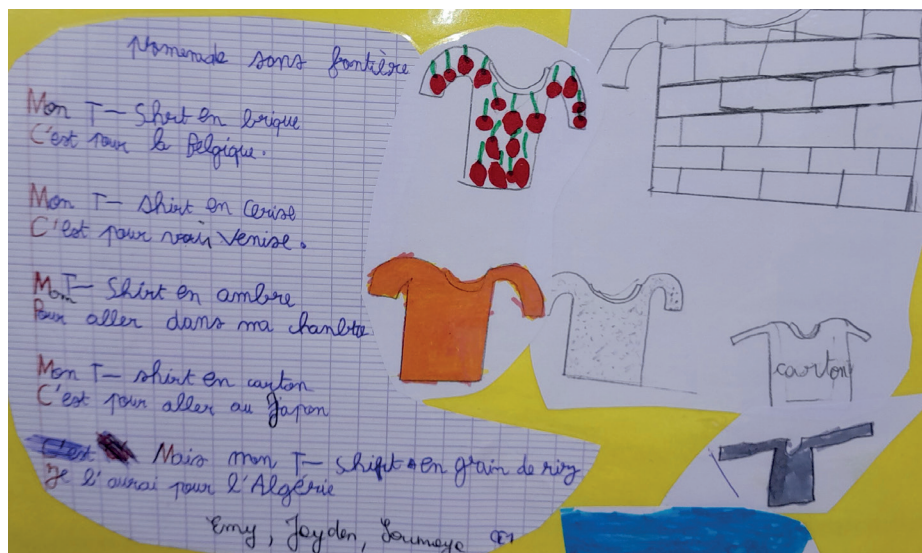 Promenade sans frontière
Mon T-Shirt en brique
C'est pour la Belgique.
Mon T-shirt en cerise
C'est pour voir Venise.
Mon T-Shirt en ambre
Pour aller dans ma chanbre
Mon T-shirt en carton
C'est pour aller au Japon
C'est Mais mon T-shirt en grain de rizz
Je l'aurai pour l'Algérie
Emy, Jayden, Soumaya CE1
carton